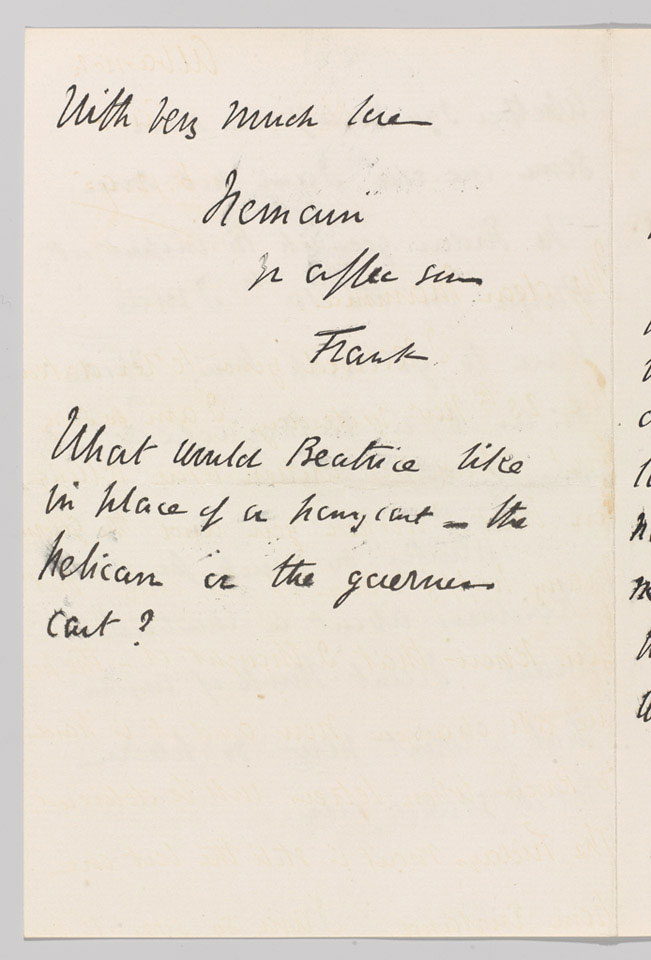 With very much love
I remain
Yr affec son
Frank
What would Beatrice like
in place of a pony cart – the
pelican or the governess
cart?